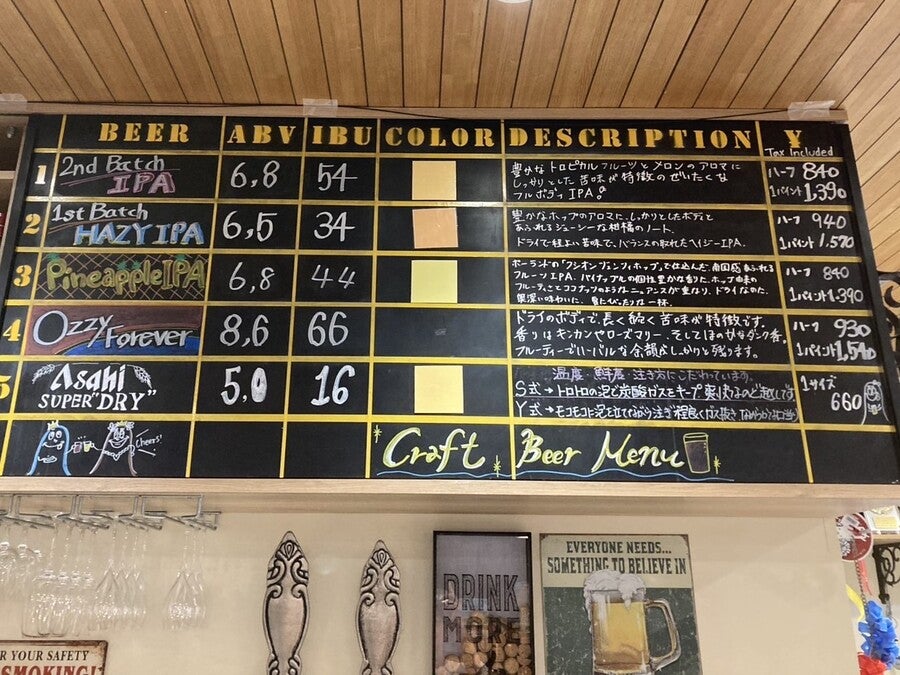 BEER ABV IBU COLOR DESCRIPTION ¥
Tax included
1 2nd Batch IPA 6,8 54
豊かなトロピカルフルーツとメロンのアロマに
しっかりとした苦味が特徴のぜいたくな
フルボディIPA。
ハーフ 840
1パイント 1,390
2 1st Batch HAZY IPA 6,5 34
豊かなホップのアロマに、しっかりとしたボディと
あふれるジューシーな柑橘のノート。
ドライで程よい苦味で、バランスの取れたヘイジーIPA.
ハーフ 940
1パイント 1.570
3 Pineapple IPA 6,8 44
ポーランドの"フシオンジュンフィホップ"で仕込んだ、南国感あふれる
フルーツIPA.パイナップルの個性豊かな香りと、ホップ由来の
フルーティさとココナッツのようなニュアンスが重なり、ドライなのに、
果深い味わいに。夏にぴったりな一杯.
ハーフ 840
1パイント 1.390
4 Ozzy Forever 8,6 66
ドライのボディで、長く続く苦味が特徴です.
香りはキンカンやローズマリー、そしてほのかなダンク香。
フルーティーでハーバルな余韻がしっかりと残ります。
ハーフ 930
1パイント 1,540
5 Asahi SUPER "DRY" 5.0 16
温度・鮮度・注ぎ方にこだわっています。
S式→トロトロの泥で炭酸ガスをキープ 爽快なのど越しです
Y式→モコモコと泥を立てながら注ぎ 程良くガス抜き
1サイズ
660
Cheers!
Craft Beer Menu
EVERYONE NEEDS...
SOMETHING TO BELIEVE IN
DRINK
MORE
R YOUR SAFETY
SMOKING!